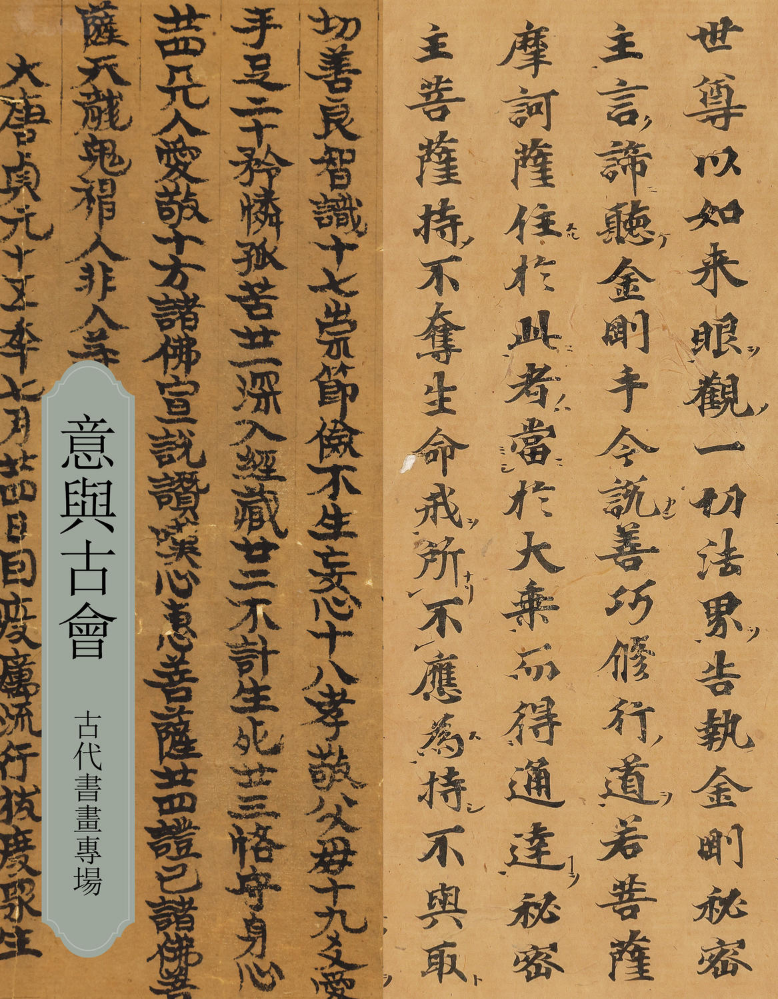 世尊以如来眼觀一切法界告執金剛秘密
主言諦聽金剛手今説善巧修行道若菩薩
摩訶薩住於此者當於大乗而得通達秘密
主菩薩持不奪生命戒所不應為持不與取
切善良智識十七崇節儉不生妄心十八孝敬父母十九
手足二十矜憐孤苦廿一深入經藏廿二不計生死廿三恪守身心
廿四凡人愛敬十方諸佛宣説讚嘆心惠菩薩廿四證已諸佛菩
薩天龍鬼神人非人等
大唐貞元十五年七月廿四日因疫厲流行拔度眾生
意與古會
古代書畫專場